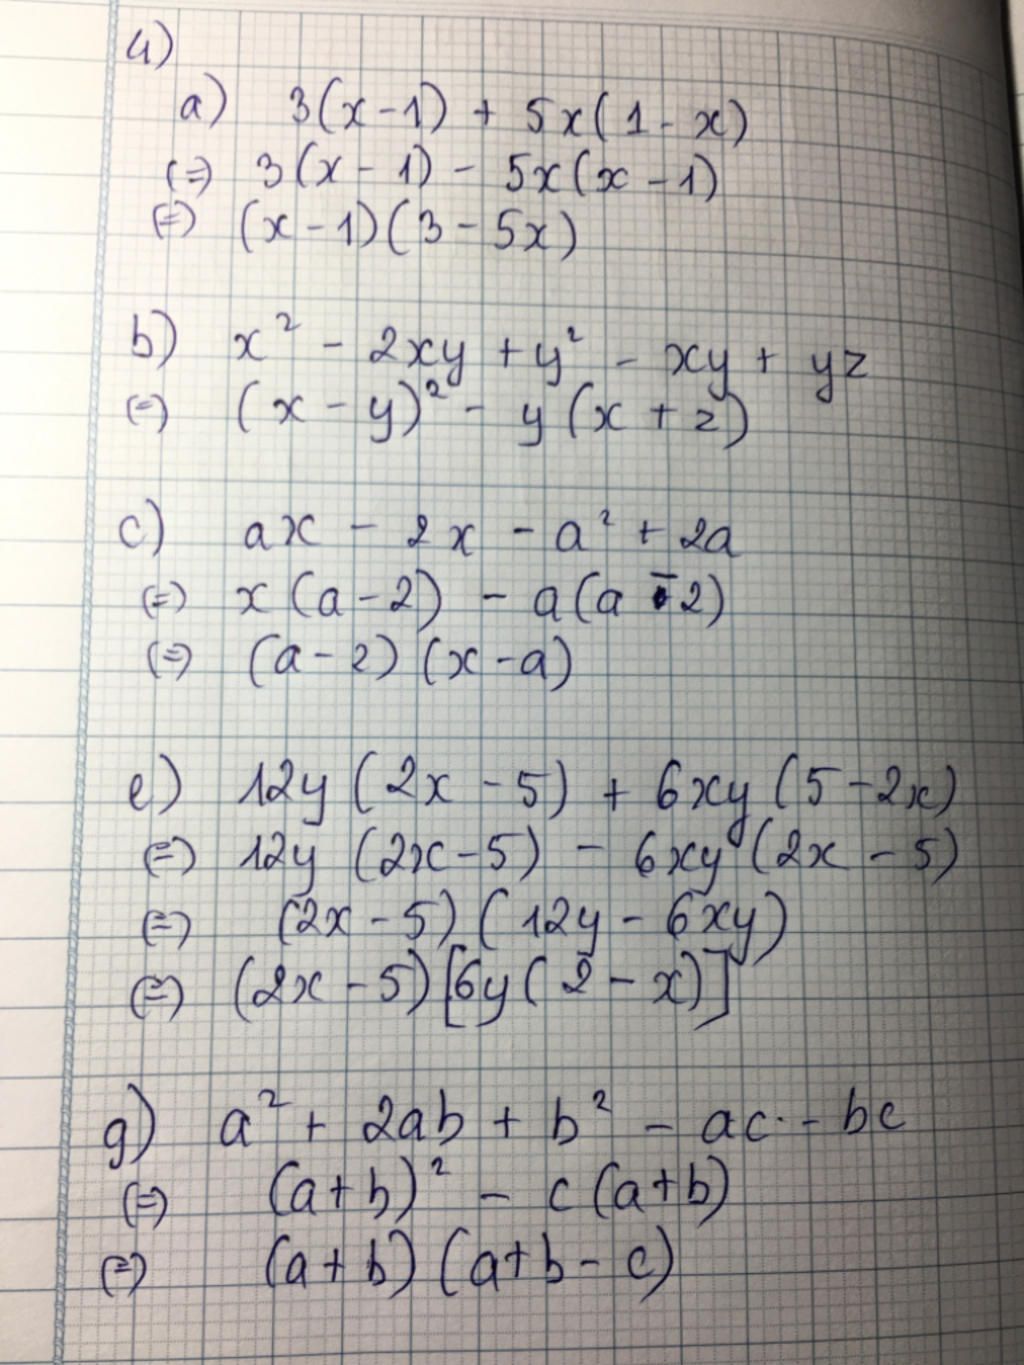 4)
a) 3(x-1) + 5x(1-x)
(=) 3(x-1) - 5x(x-1)
(=) (x-1)(3-5x)
b) x² - 2xy + y² - xy + yz
(=) (x-y)² - y(x+z)
c) ax - 2x - a² + 2a
(=) x(a-2) - a(a-2)
(=) (a-2)(x-a)
e) 12y(2x-5) + 6xy(5-2x)
(=) 12y(2x-5) - 6xy(2x-5)
(=) (2x-5)(12y-6xy)
(=) (2x-5)[6y(2-x)]
g) a² + 2ab + b² - ac - bc
(=) (a+b)² - c(a+b)
(=) (a+b)(a+b-c)